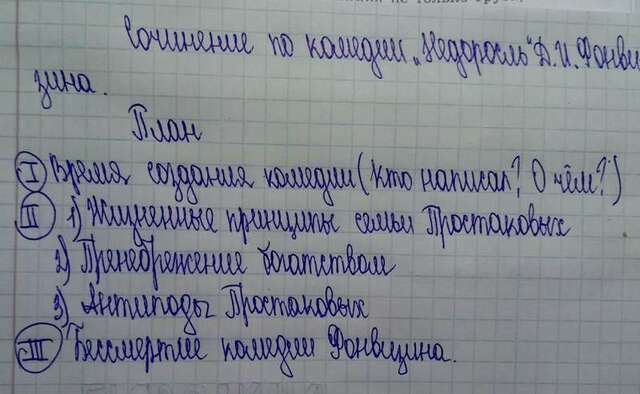 Сочинение по комедии „Недоросль" Д.И. Фонви
зина.
План
I Время создания комедии (Кто написал? О чём?)
II 1) Жизненные принципы семьи Простаковых
2) Пренебрежение богатством
3) Антиподы Простаковых
III Бессмертие комедии Фонвизина.